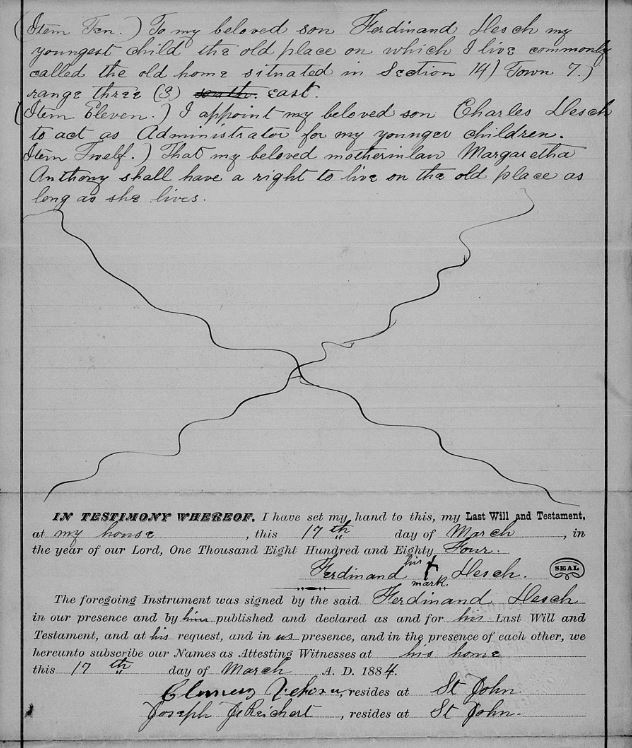 (Item Ten.) To my beloved son Ferdinand Desch my
youngest child the old place on which I live commonly
called the old home situated in Section 14) Town 7.)
range three (3) east.
(Item Eleven.) I appoint my beloved son Charles Desch
to act as Administrator for my younger children.
Item Twelf.) That my beloved motherinlaw Margaretha
Anthony shall have a right to live on the old place as
long as she lives.
IN TESTIMONY WHEREOF, I have set my hand to this, my Last Will and Testament,
at my house, this 17th day of March, in
the year of our Lord, One Thousand Eight Hundred and Eighty Four.
his
Ferdinand + Desch. SEAL
mark.
The foregoing Instrument was signed by the said Ferdinand Desch
in our presence and by him published and declared as and for his Last Will and
Testament, and at his request, and in us presence, and in the presence of each other, we
hereunto subscribe our Names as Attesting Witnesses at his home
this 17th day of March A. D. 1884.
resides at St John
Joseph Reichert, resides at St John.